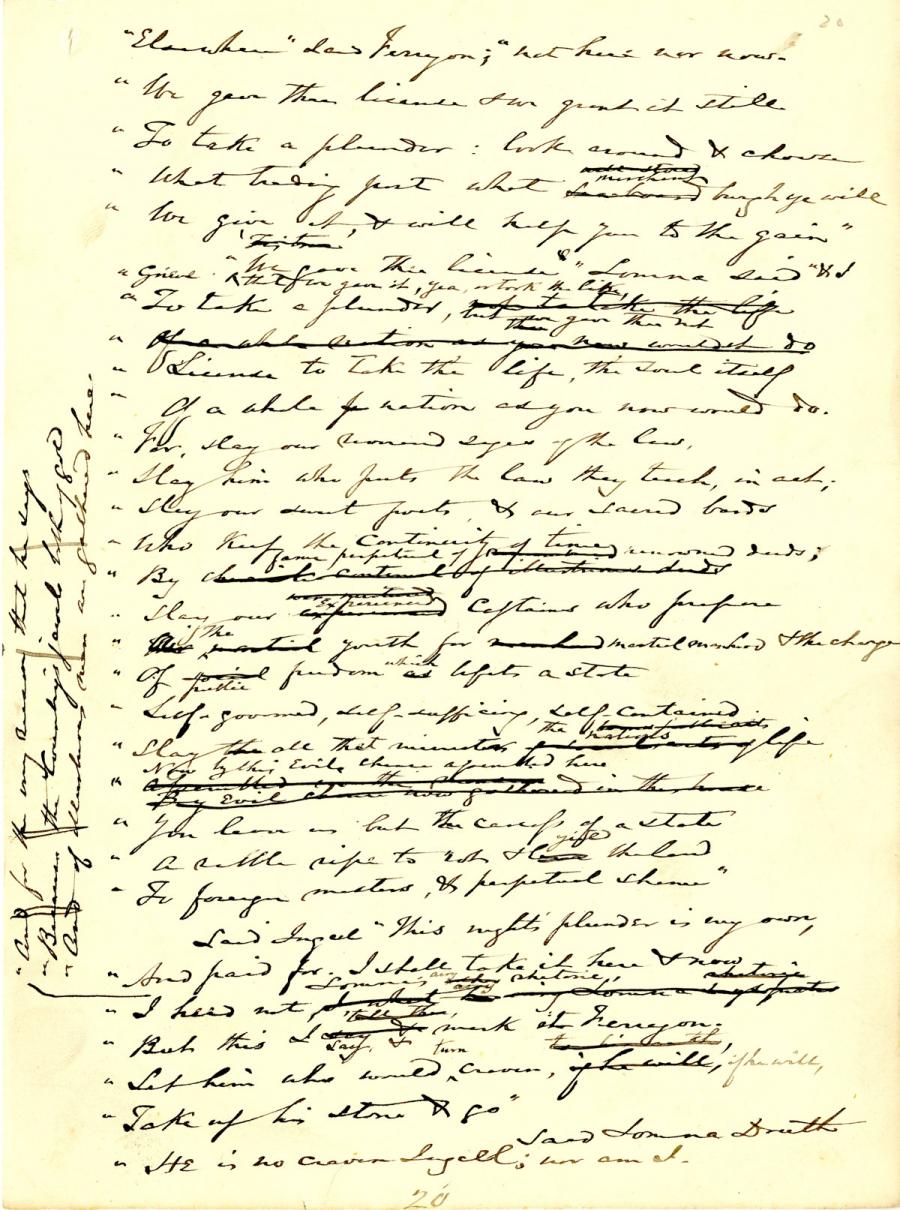 20
"Elsewhere" said Ferrgon; "not here nor now.
" We gave thee license & we grant it still
" To take a plunder: look around & choose
" What trading post what merchant burgh ye will
" We give it, & will help you to the gain"
" We gave thee license" Lomna said "& I
" Grieve that we gave it, yea, or took the like,
" To take a plunder, but we gave thee not
" License to take the life, the soul itself
" Of a whole nation as you now would do.
" For, slay our
" Slay him who puts the law they teach, in act;
" Slay our sweet poets, & our sacred bards
" Who keep the continuity of time
" By fame perpetual of renowned deeds;
" Slay our experienced captains who prepare
" The youth for martial manhood & the charge
" Of public freedom which uplifts a state
" Self-governed, self-sufficing, self-contained
" Slay all that minister the nation's life
" Now by this Evil chance assembled here
" You leave us but the carcass of a state
" A rattle ripe to rot & give the land
" To foreign masters & perpetual shame"
Said Ingcel "This night's plunder is my own,
" And paid for. I shall take it here & now
" I heed not Lomna's airy rhetoric,
" But this I say, & mark it Ferrgon.
" Let him who would turn craven, if he will,
" Take up his stone & go"
Said Lomna Druth
" He is no craven Ingcell; nor am I.
20
" And for the
" Because the
" And of illustrious men are gathered here.